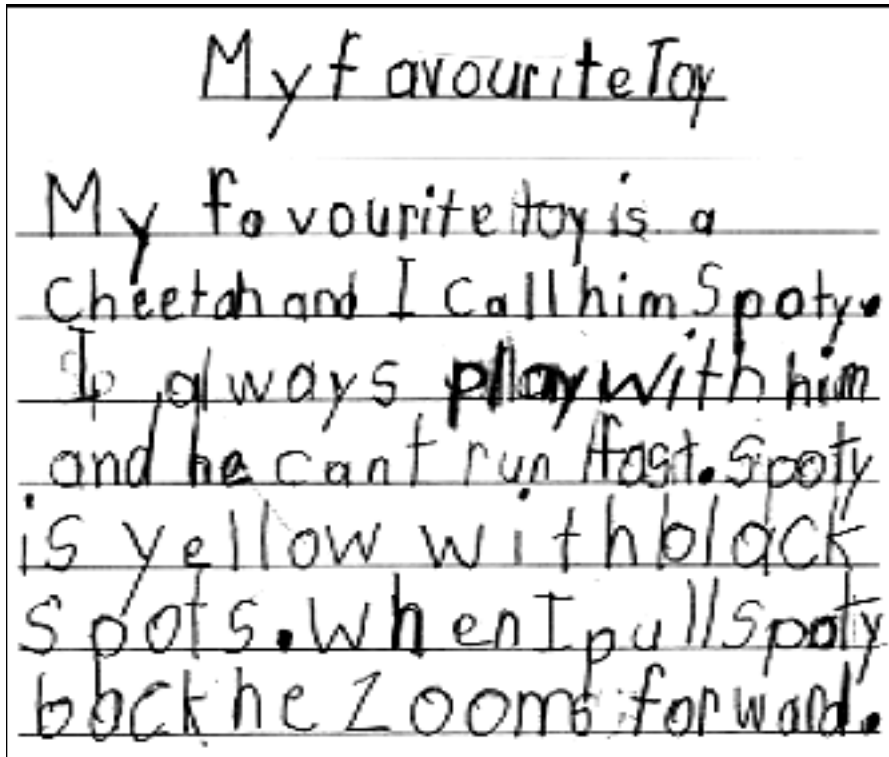 My favourite Toy
My favourite toy is a
Cheetah and I Call him Spoty.
I always play with him
and he cant run fast. Spoty
is yellow with black
Spots. When I pull Spoty
back he Zooms forward.